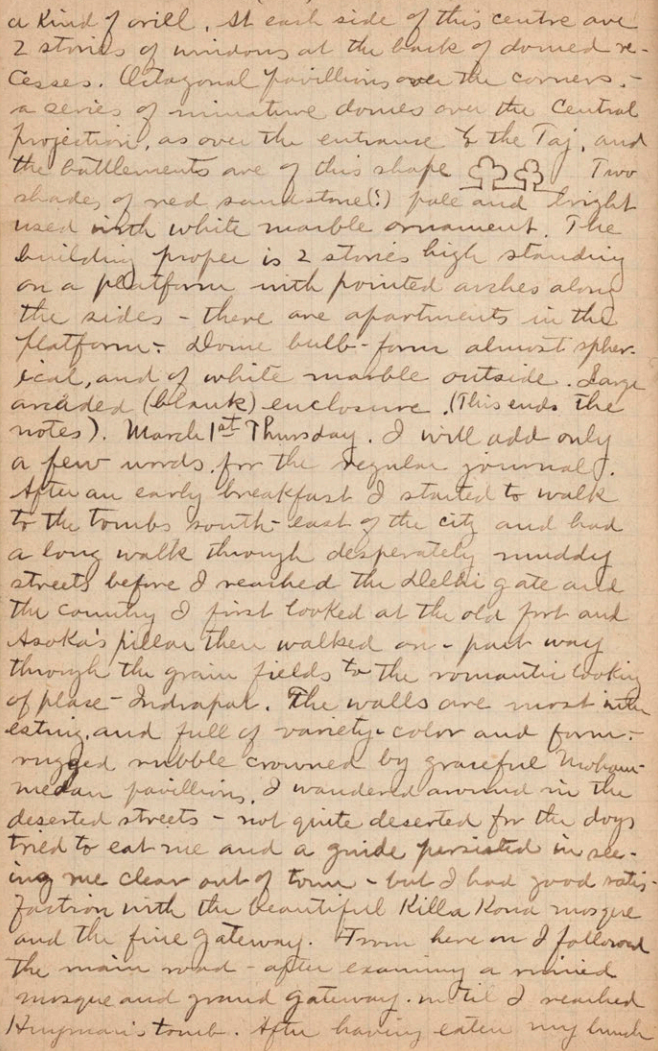 a kind of grill. At each side of this centre are
2 stories of windows at the back of domed re-
cesses. Octagonal pavillions over the corners, -
a series of miniature domes over the central
projection, as over the entrance to the Taj, and
the battlements are of this shape Two
shades of red sandstone(?) pale and bright
used with white marble ornament. The
building proper is 2 stories high standing
on a platform with pointed arches along
the sides - there are apartments in the
platform - Dome bulb-form almost spher-
ical, and of white marble outside. Large
arcaded (blank) enclosure. (This ends the
notes). March 1st Thursday. I will add only
a few words for the regular journal.
After an early breakfast I started to walk
to the tombs south-east of the city and had
a long walk through desperately muddy
streets before I reached the Delhi gate and
the country I first looked at the old fort and
Asoka's pillar then walked on - part way
through the grain fields to the romantic looking
of place - Indrapat. The walls are most inter
esting, and full of variety - color and form -
rugged rubble crowned by graceful Moham-
medan pavillions. I wandered around in the
deserted streets - not quite deserted for the dogs
tried to eat me and a guide persisted in see-
ing me clear out of town - but I had good satis-
faction with the beautiful Killa Kona mosque
and the fine gateway. From here on I followed
the main road - after examining a ruined
mosque and grand gateway. until I reached
tomb. After having eaten my lunch